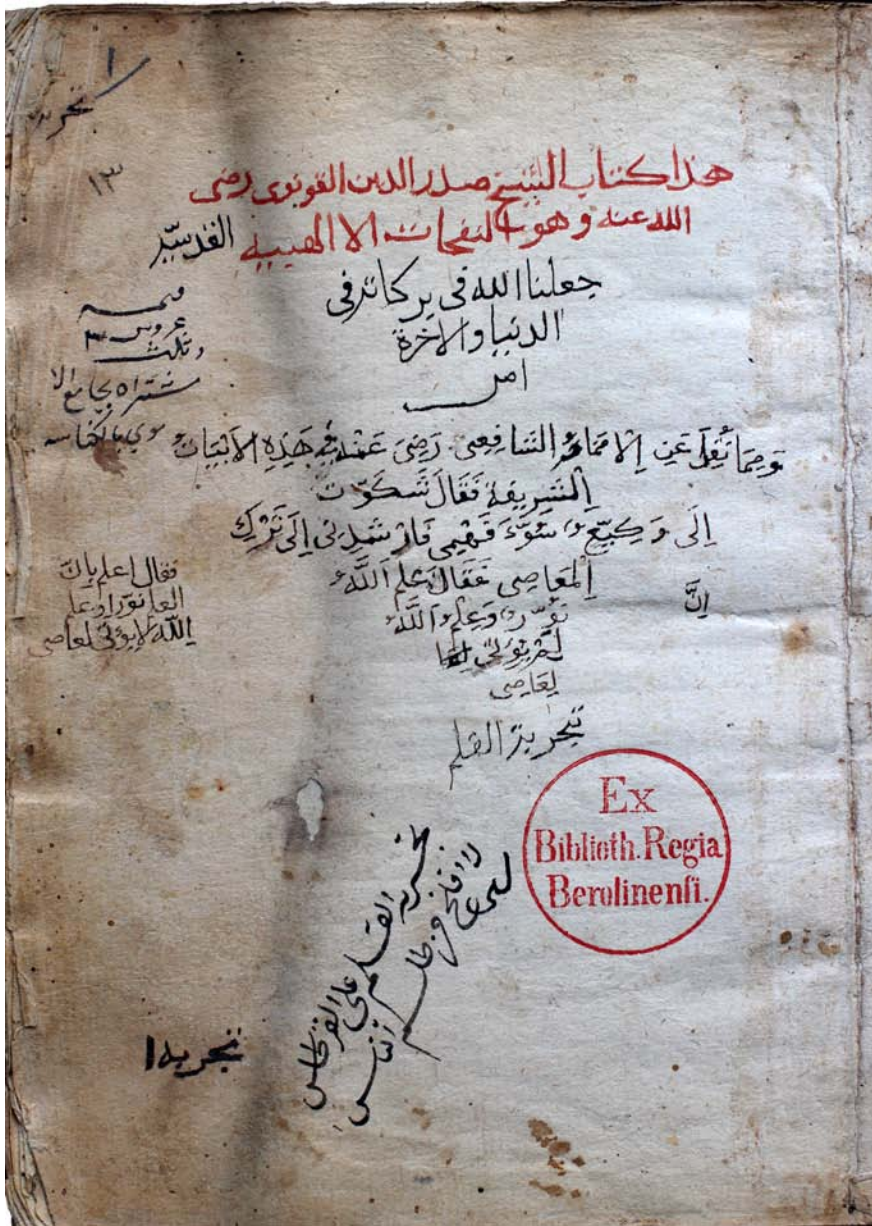 ١
تجربه
١٣
هذا كتاب الشيخ صدر الدين القونوي رضى
الله عنه وهو النفحات الالاهييه القدسيه
جعلنا الله فى بركاته فى
الدنيا والاخرة
امين
قيمه
عروس ٣
وثلث
مشتراه بجامع الا
ومِمَا نُقِلَ عَنِ الامَامُ الشافِعِى رَضِىَ عَنْهُ هَذِهِ الاَبْيَاتُ
الشَرِيفَة فَقَالَ شَكَوْت
اِلَى وَكِيعٍ سُوْءَ فَهْمِى فَارْشَدَنِى اِلَى تَرْكِ
الْمَعَاصِى فَقَالَ عِلم اللَّهُ
اِنَّ
نُوْرٌ وَعِلْمُ اللَّهُ
لَمْ يؤتى لعا
لِعَاصِى
فقال اعلم بان
العلم نورا وعلم
اللّه لا يؤتى لعاصى
تجربة القلم
تجربه القلم على القرطاس
لا افلح من ظلم الناس
تجربه ا
Ex
Biblioth. Regia
Berolinensi.